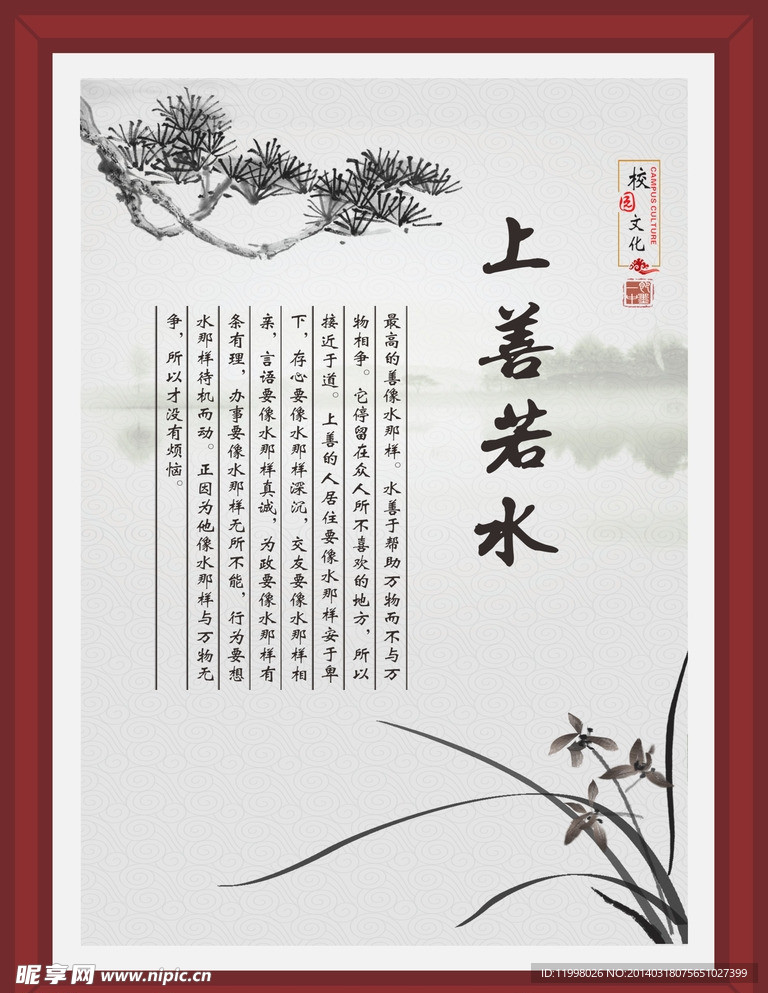 校园文化
CAMPUS CULTURE
上善若水
最高的善像水那样。水善于帮助万物而不与万
物相争。它停留在众人所不喜欢的地方，所以
接近于道。上善的人居住要像水那样安于卑
下，存心要像水那样深沉，交友要像水那样相
亲，言语要像水那样真诚，为政要像水那样有
条有理，办事要像水那样无所不能，行为要想
水那样待机而动。正因为他像水那样与万物无
争，所以才没有烦恼。
昵享网 www.nipic.cn
ID:11998026 NO:20140318075651027399